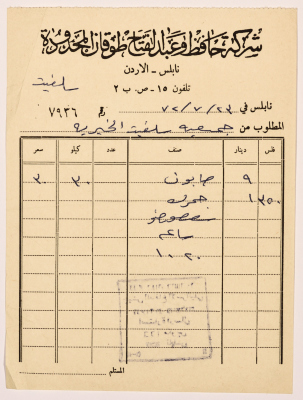 شركة حافظ وعبد الفتاح طوقان المحدودة
نابلس - الاردن
تلفون ١٥ - ص. ب ٢
سلفيت
نابلس في ٢٣/٧/٧٢
رقم ٧٩٣٦
المطلوب من جمعية سلفيت الخيرية
فلس دينار صنف عدد كيلو سعر
٩ صابون ٣٠ ٣٠
٣٥٠ ١ جمرك
١٠٢٠
المستلم